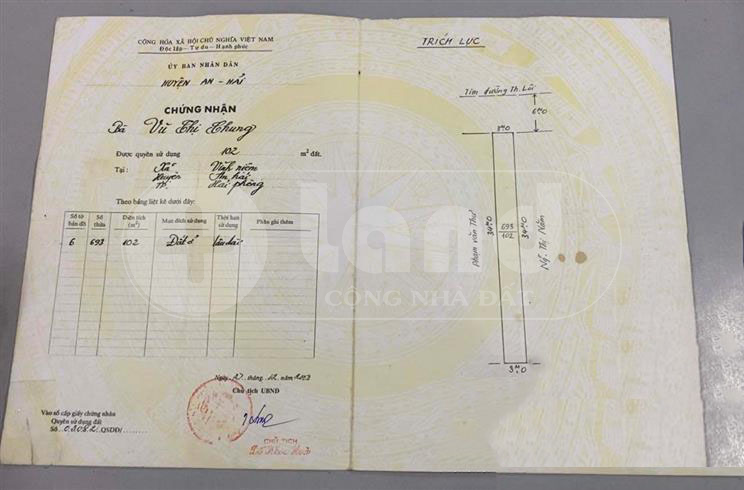 CỘNG HÒA XÃ HỘI CHỦ NGHĨA VIỆT NAM
Độc lập - Tự do - Hạnh phúc
ỦY BAN NHÂN DÂN
HUYỆN AN - HẢI
CHỨNG NHẬN
Bà Vũ Thị Chung
Được quyền sử dụng 102 m² đất.
Tại : Xã Vĩnh niệm
Huyện An hải
TP. Hải phòng
Theo bảng liệt kê dưới đây:
Số tờ bản đồ Số thửa Diện tích (m²) Mục đích sử dụng Thời hạn sử dụng Phần ghi thêm
6 693 102 Đất ở Lâu dài
Ngày 27 tháng 12 năm
Chủ tịch UBND
CHỦ TỊCH
Vào sổ cấp giấy chứng nhận
Quyền sử dụng đất
Số 03082 QSDĐ/
TRÍCH LỤC
Tim đường Th. Lôi
6M0
3M0
Phạm văn Thư
34M0
693
102
34M0
Ng. Thị Năm
3M0
land
CỔNG NHÀ ĐẤT